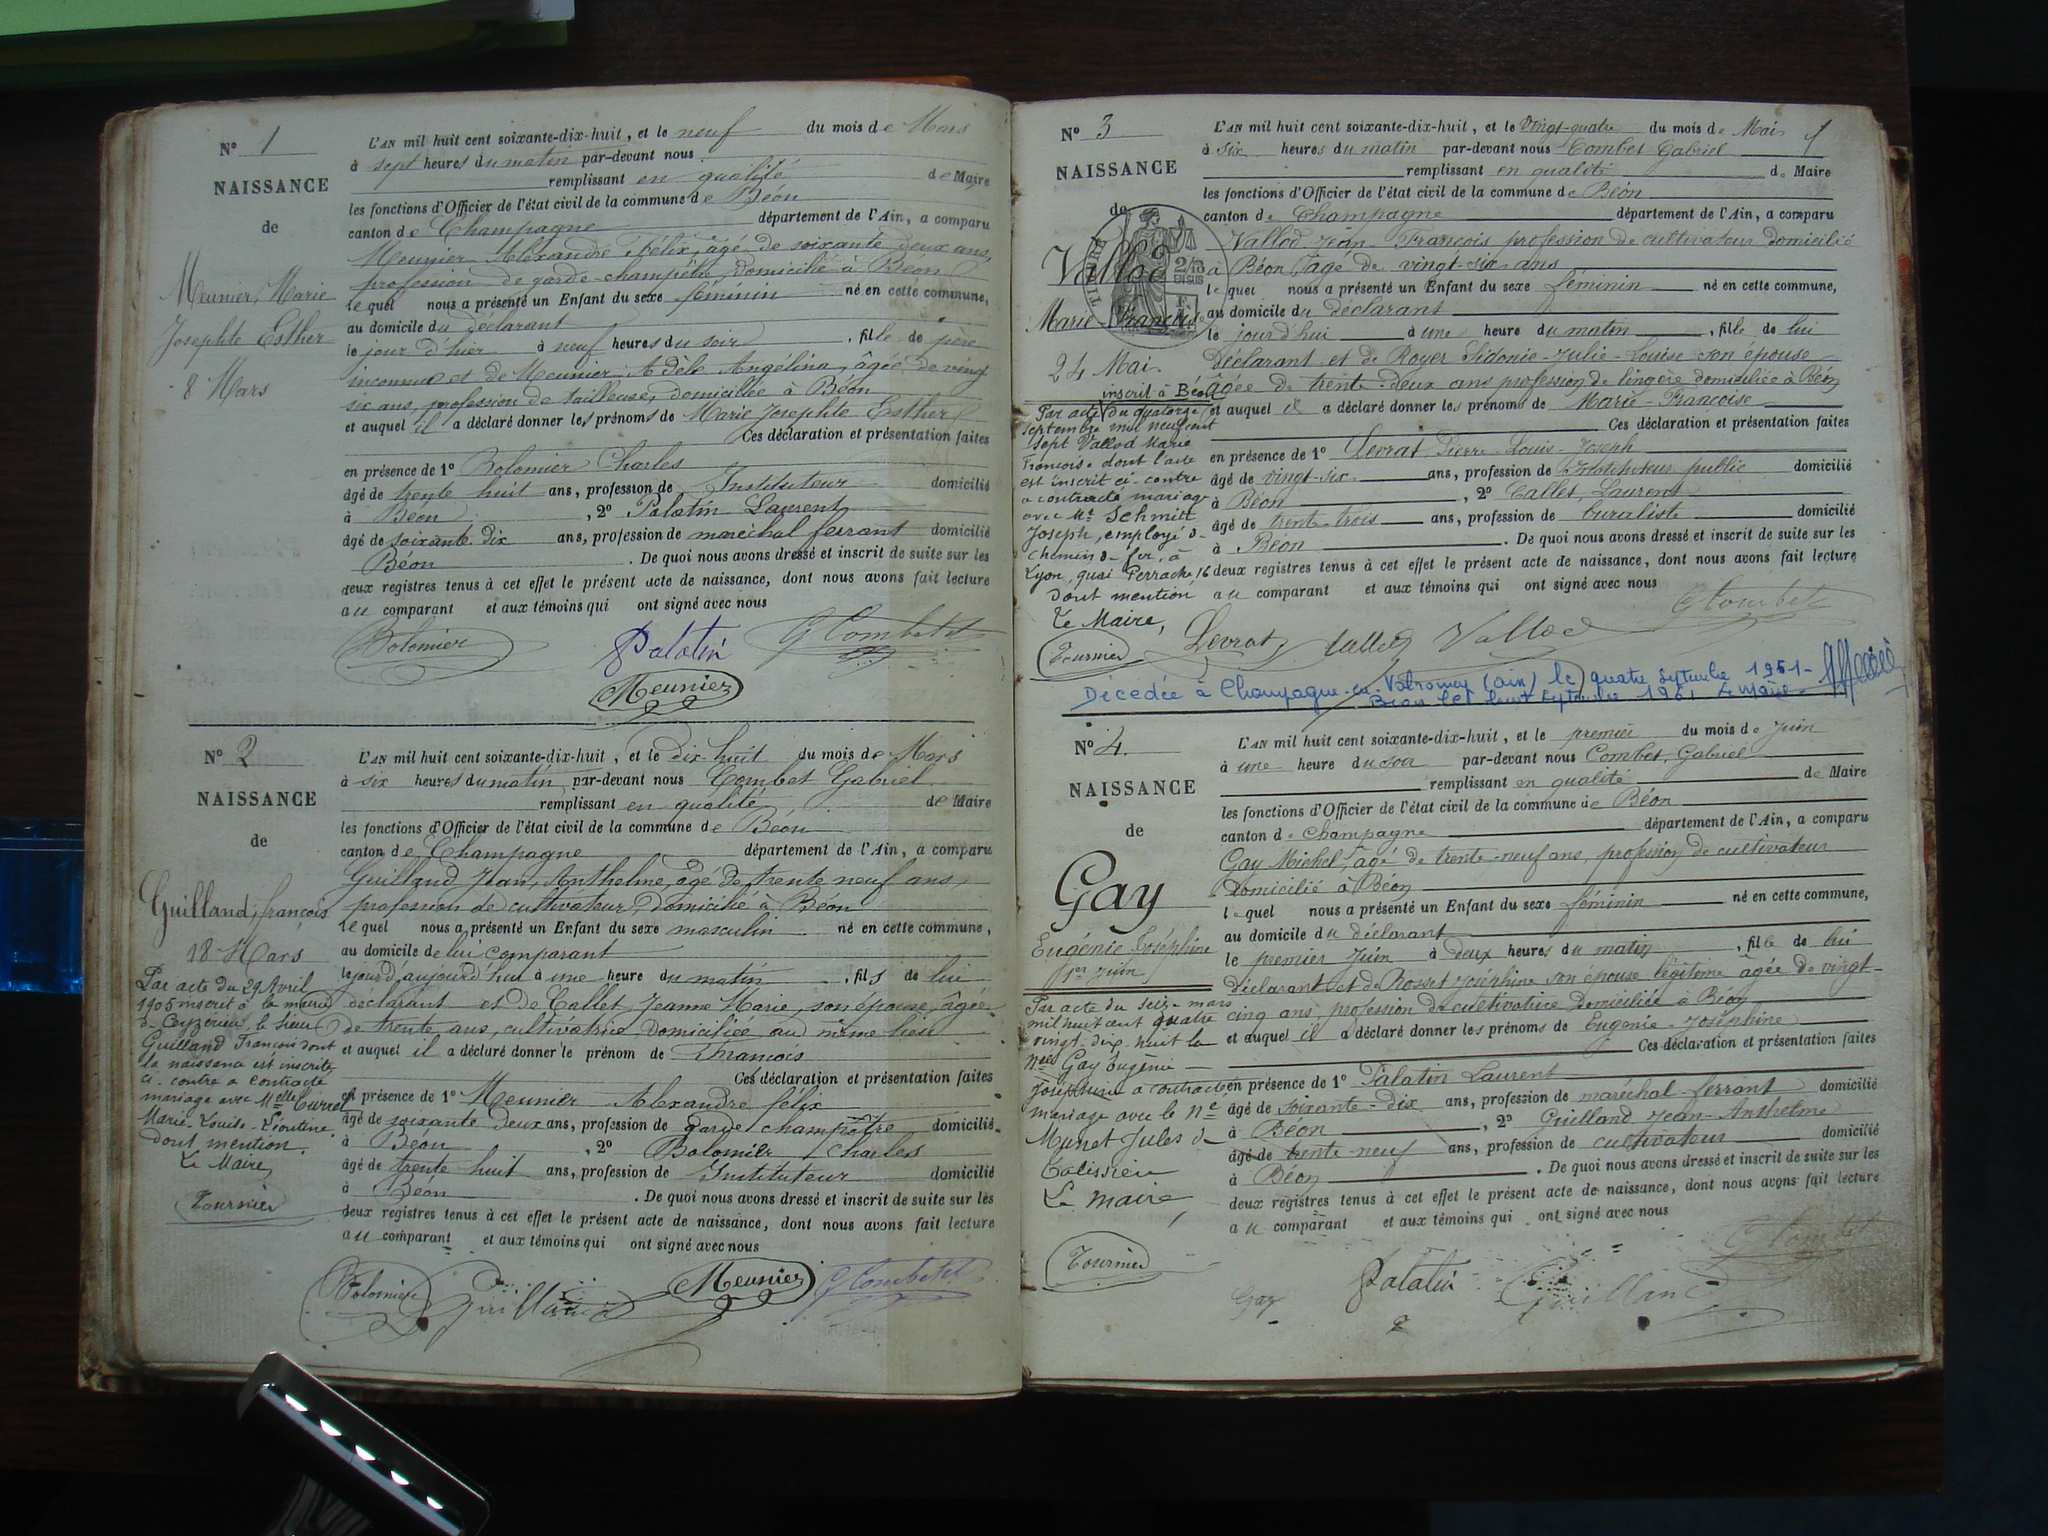 N° 1
NAISSANCE
de
Meunier, Marie
Josephte Esther
8 Mars
L'AN mil huit cent soixante-dix-huit, et le neuf du mois de Mars
à sept heures du matin par-devant nous
remplissant en qualité de Maire
les fonctions d'Officier de l'état civil de la commune de Béon
canton de Champagne département de l'Ain, a comparu
Meunier Alexandre Félix, âgé de soixante deux ans,
profession de garde-champêtre, domicilié à Béon
lequel nous a présenté un Enfant du sexe féminin né en cette commune,
au domicile du déclarant
le jour d'hier à neuf heures du soir, fille de père
inconnu et de Meunier Adèle Angélina, âgée de vingt
six ans, profession de tailleuse, domiciliée à Béon
et auquel il a déclaré donner les prénoms de Marie Josephte Esther
Ces déclaration et présentation faites
en présence de 1° Bolomier Charles
âgé de trente huit ans, profession de Instituteur domicilié
à Béon, 2° Palatin Laurent
âgé de soixante dix ans, profession de maréchal ferrant domicilié
Béon. De quoi nous avons dressé et inscrit de suite sur les
deux registres tenus à cet effet le présent acte de naissance, dont nous avons fait lecture
au comparant et aux témoins qui ont signé avec nous
Bolomier Palatin G Combet
Meunier
N° 2
NAISSANCE
de
Guilland, françois
18 Mars
Par acte du 29 Avril
1905 inscrit à la mairie
de Ceyzérieu, le sieur
Guilland François dont
la naissance est inscrite
ci-contre a contracté
mariage avec Melle Curvet
Marie-Louise-Léontine
dont mention.
Le Maire,
Tournier
L'AN mil huit cent soixante-dix-huit, et le dix-huit du mois de Mars
à six heures du matin par-devant nous Combet Gabriel
remplissant en qualité de Maire
les fonctions d'Officier de l'état civil de la commune de Béon
canton de Champagne département de l'Ain, a comparu
Guilland Jean, Anthelme, âgé de trente neuf ans,
profession de cultivateur, domicilié à Béon
lequel nous a présenté un Enfant du sexe masculin né en cette commune,
au domicile de lui comparant
le jour d'aujourd'hui à une heure du matin, fils de lui
déclarant et de Callet, Jeanne Marie, son épouse, âgée
de trente ans, cultivatrice domiciliée au même lieu
et auquel il a déclaré donner le prénom de François
Ces déclaration et présentation faites
en présence de 1° Meunier Alexandre félix
âgé de soixante deux ans, profession de garde champêtre domicilié
à Béon, 2° Bolomier Charles
âgé de trente huit ans, profession de Instituteur domicilié
à Béon. De quoi nous avons dressé et inscrit de suite sur les
deux registres tenus à cet effet le présent acte de naissance, dont nous avons fait lecture
au comparant et aux témoins qui ont signé avec nous
Bolomier Guilland Meunier G Combet
N° 3
NAISSANCE
de
Vallod
Marie-Françoise
24 Mai
inscrit à Béon
Par acte du quatorze
septembre mil neuf cent
sept Vallod Marie
Françoise dont l'acte
est inscrit ci-contre
a contracté mariage
avec Mr Schmitt
Joseph, employé de
chemin de fer, à
Lyon, quai Perrache 16
dont mention
Le Maire,
Tournier
L'AN mil huit cent soixante-dix-huit, et le vingt-quatre du mois de Mai
à six heures du matin par-devant nous Combet Gabriel
remplissant en qualité de Maire
les fonctions d'Officier de l'état civil de la commune de Béon
canton de Champagne département de l'Ain, a comparu
Vallod Jean-François profession de cultivateur domicilié
à Béon, âgé de vingt-six ans
lequel nous a présenté un Enfant du sexe féminin né en cette commune,
au domicile du déclarant
le jourd'hui à une heure du matin, fille de lui
déclarant et de Royer Sidonie-Julie-Louise son épouse
âgée de trente-deux ans profession de lingère domiciliée à Béon
et auquel il a déclaré donner les prénoms de Marie-Françoise
Ces déclaration et présentation faites
en présence de 1° Levrat Pierre-Louis-Joseph
âgé de vingt-six ans, profession de Instituteur public domicilié
à Béon, 2° Callet, Laurent
âgé de trente-trois ans, profession de buraliste domicilié
à Béon. De quoi nous avons dressé et inscrit de suite sur les
deux registres tenus à cet effet le présent acte de naissance, dont nous avons fait lecture
au comparant et aux témoins qui ont signé avec nous
G Combet
Levrat Callet Vallod
Décédée à Champagne-en-Valromey (ain) le quatre septembre 1951
Béon le huit septembre 1951 Le Maire
N° 4
NAISSANCE
de
Gay
Eugénie Joséphine
1er Juin
Par acte du seize mars
mil huit cent quatre
vingt-dix-huit la
née Gay Eugénie
Joséphine a contracté
mariage avec le né
Munet Jules de
Talissieu
Le Maire,
Tournier
L'AN mil huit cent soixante-dix-huit, et le premier du mois de Juin
à une heure du soir par-devant nous Combet Gabriel
remplissant en qualité de Maire
les fonctions d'Officier de l'état civil de la commune de Béon
canton de Champagne département de l'Ain, a comparu
Gay Michel, âgé de trente-neuf ans, profession de cultivateur
domicilié à Béon
lequel nous a présenté un Enfant du sexe féminin né en cette commune,
au domicile du déclarant
le premier Juin à deux heures du matin, fille de lui
déclarant et de Rosset Joséphine son épouse légitime âgée de vingt-
cinq ans, profession de cultivatrice domiciliée à Béon
et auquel il a déclaré donner les prénoms de Eugénie-Joséphine
Ces déclaration et présentation faites
en présence de 1° Palatin Laurent
âgé de soixante-dix ans, profession de maréchal-ferrant domicilié
à Béon, 2° Guilland Jean-Anthelme
âgé de trente-neuf ans, profession de cultivateur domicilié
à Béon. De quoi nous avons dressé et inscrit de suite sur les
deux registres tenus à cet effet le présent acte de naissance, dont nous avons fait lecture
au comparant et aux témoins qui ont signé avec nous
G Combet
Gay Palatin Guilland